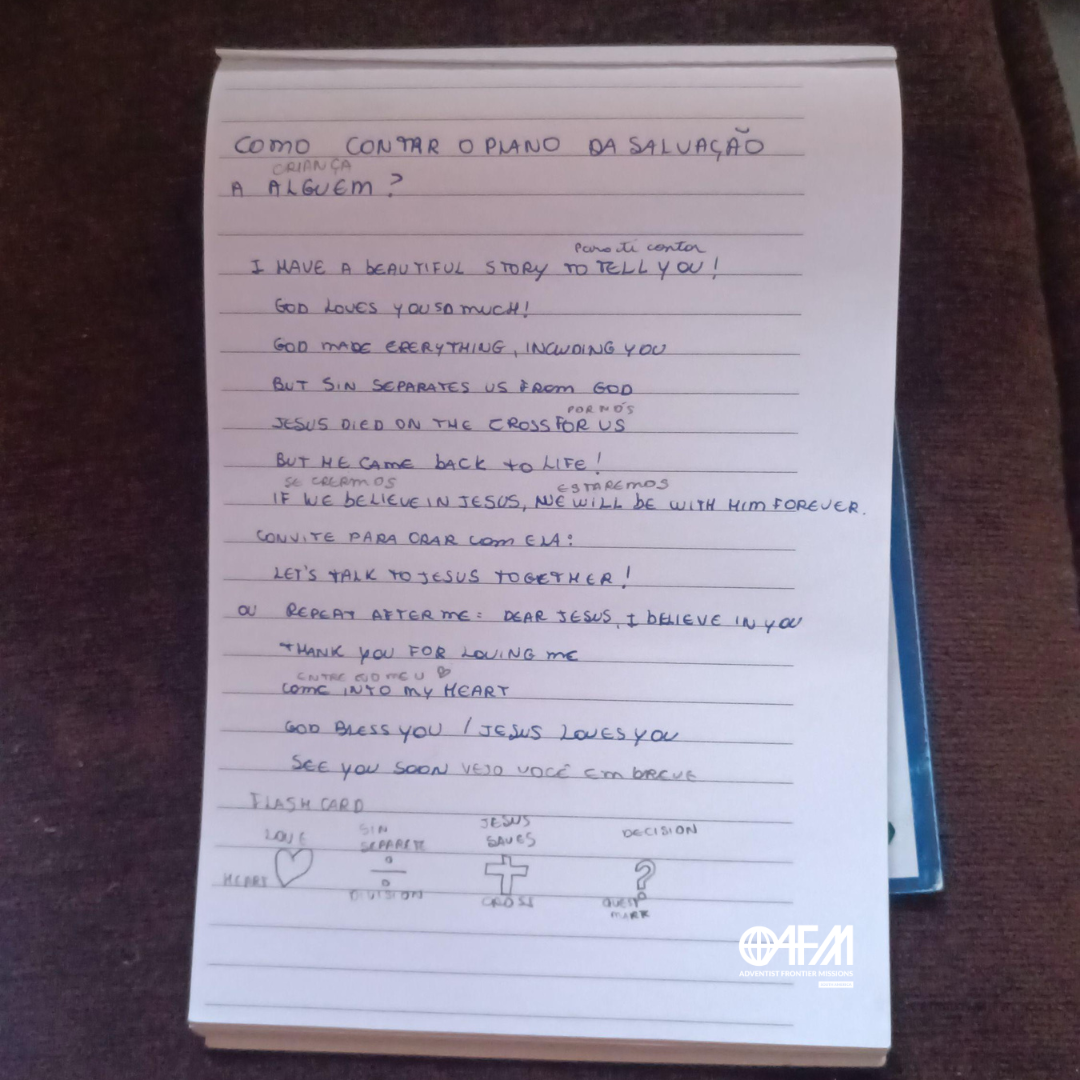 COMO CONTAR O PLANO DA SALVAÇÃO
CRIANÇA
A ALGUEM?
Para ti contar
I HAVE A BEAUTIFUL STORY TO TELL YOU!
GOD LOVES YOU SO MUCH!
GOD MADE EVERYTHING, INCLUDING YOU
BUT SIN SEPARATES US FROM GOD
POR NÓS
JESUS DIED ON THE CROSS FOR US
BUT HE CAME BACK TO LIFE!
SE CRERMOS ESTAREMOS
IF WE BELIEVE IN JESUS, WE WILL BE WITH HIM FOREVER.
CONVITE PARA ORAR COM ELA:
LET'S TALK TO JESUS TOGETHER!
OU REPEAT AFTER ME: DEAR JESUS, I BELIEVE IN YOU
THANK YOU FOR LOVING ME
ENTRE NO MEU
COME INTO MY HEART
GOD BLESS YOU / JESUS LOVES YOU
SEE YOU SOON VEJO VOCÊ EM BREVE
FLASH CARD
LOVE SIN SEPARETE JESUS SAVES DECISION
HEART DIVISION CROSS QUEST MARK
AFM
ADVENTIST FRONTIER MISSIONS